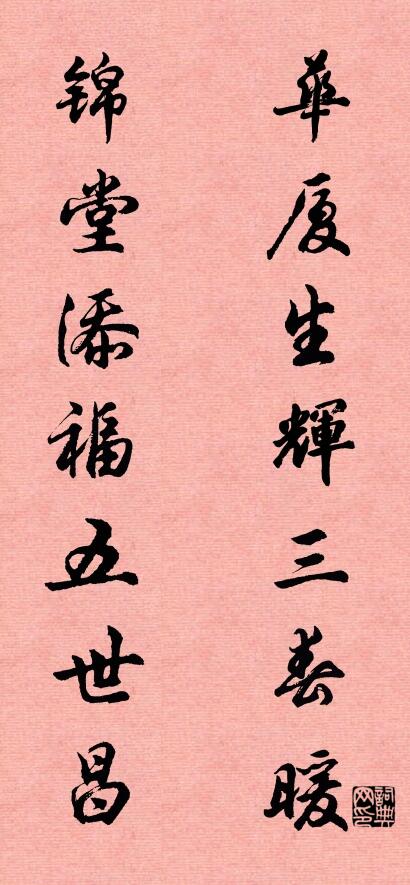 華厦生輝三春暖
锦堂添福五世昌
詞典網印